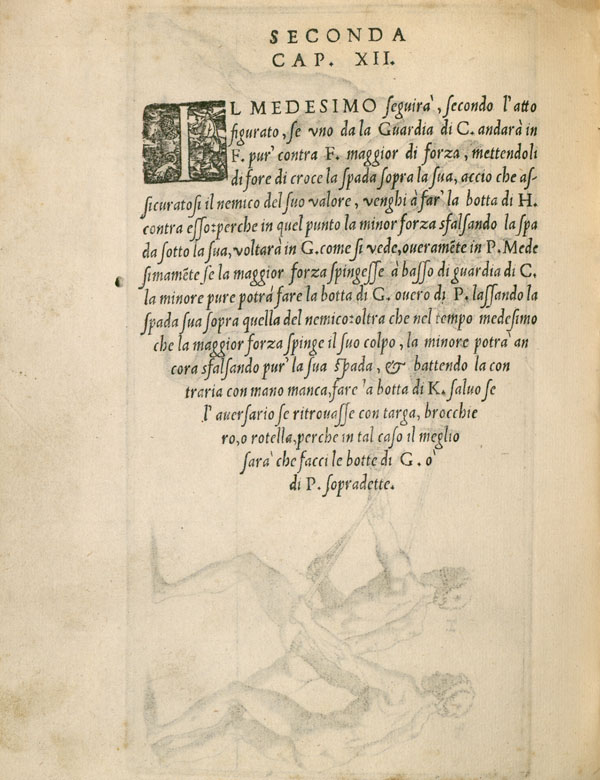 SECONDA
CAP. XII.
IL MEDESIMO ſeguirà, ſecondo l'atto
figurato, ſe vno da la Guardia di C. andarà in
F. pur' contra F. maggior di forza, mettendoli
di fore di croce la ſpada ſopra la ſua, accio che aſ-
ſicuratoſi il nemico del ſuo valore, venghi à far' la botta di H.
contra eſſo: perche in quel punto la minor forza sfalſando la ſpa
da ſotto la ſua, voltarà in G. come ſi vede, oueramẽte in P. Mede
ſimamẽte ſe la maggior forza ſpingeſſe à baſſo di guardia di C.
la minore pure potrá fare la botta di G. ouero di P. laſſando la
ſpada ſua ſopra quella del nemico: oltra che nel tempo medeſimo
che la maggior forza ſpinge il ſuo colpo, la minore potrà an
cora sfalſando pur' la ſua ſpada, & battendo la con
traria con mano manca, fare 'a botta di K. ſaluo ſe
l' auerſario ſe ritrouaſſe con targa, brocchie
ro, o rotella, perche in tal caſo il meglio
ſarà che facci le botte di G. o'
di P. ſopradette.
H